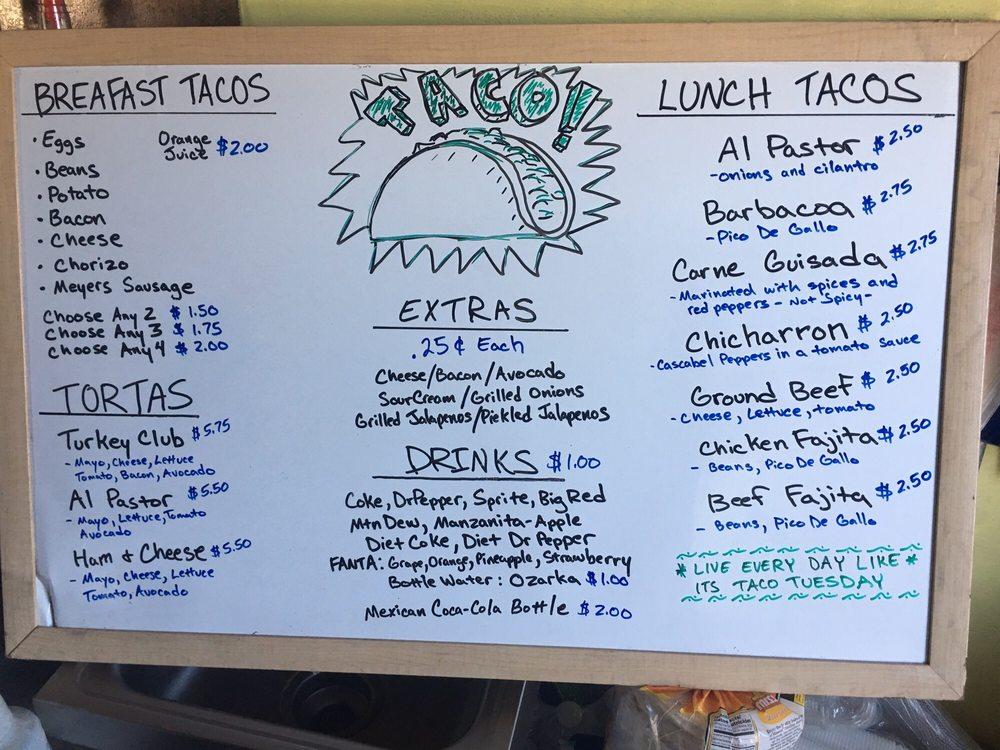 BREAFAST TACOS
• Eggs
• Beans
• Potato
• Bacon
• Cheese
• Chorizo
• Meyers Sausage
Orange
Juice $2.00
Choose Any 2 $ 1.50
Choose Any 3 $ 1.75
Choose Any 4 $ 2.00
TORTAS
Turkey Club $5.75
- Mayo, Cheese, Lettuce
Tomato, Bacon, Avocado
Al Pastor $5.50
- Mayo, Lettuce, Tomato
Avocado
Ham & Cheese $5.50
- Mayo, Cheese, Lettuce
Tomato, Avocado
TACO!
EXTRAS
.25¢ Each
Cheese/Bacon/Avocado
Sour Cream/Grilled Onions
Grilled Jalapenos/Pickled Jalapenos
DRINKS $1.00
Coke, DrPepper, Sprite, Big Red
Mtn Dew, Manzanita-Apple
Diet Coke, Diet Dr Pepper
FANTA: Grape, Orange, Pineapple, Strawberry
Bottle Water: Ozarka $1.00
Mexican Coca-Cola Bottle $2.00
LUNCH TACOS
Al Pastor $2.50
- onions and cilantro
Barbacoa $2.75
- Pico De Gallo
Carne Guisada $2.75
- Marinated with spices and
red peppers - Not Spicy -
Chicharron $ 2.50
- Cascabel Peppers in a tomato sauce
Ground Beef $ 2.50
- Cheese, Lettuce, tomato
Chicken Fajita $2.50
- Beans, Pico De Gallo
Beef Fajita $2.50
- Beans, Pico De Gallo
* LIVE EVERY DAY LIKE *
ITS TACO TUESDAY